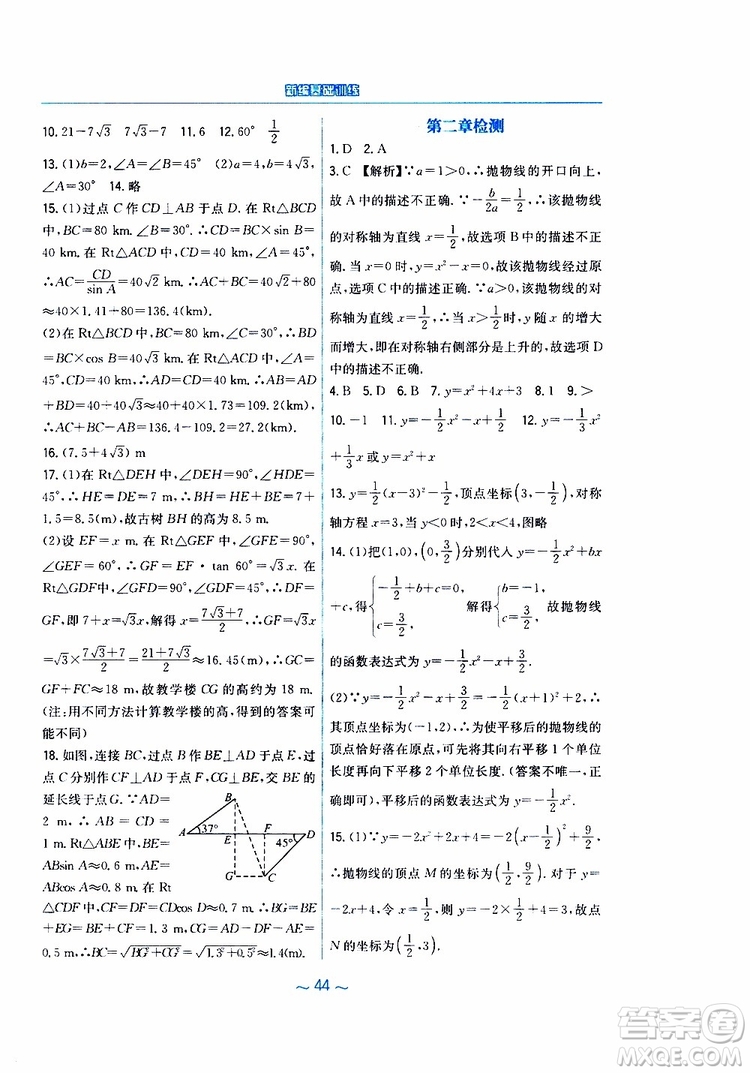 新编基础训练
10. 21－7√3　7√3　11. 6　12. 60°　1/2
13. (1)b＝2，∠A＝∠B＝45°　(2)a＝4√3，
∠A＝30°　14. 略
15. (1)过点 C 作 CD⊥AB 于点 D. 在 Rt△BCD
中，BC＝80 km，∠B＝30°，∴CD＝BC×sin B＝
40 km. 在 Rt△ACD 中，CD＝40 km，∠A＝45°，
∴AC＝CD/sin A＝40√2 km. ∴AC＋BC＝40√2＋80
≈40×1.41＋80＝136.4(km).
(2)在 Rt△BCD 中，BC＝80 km，∠B＝30°，∴BD
＝BC×cos B＝40√3 km. 在 Rt△ACD 中，∵CD
＝40 km，∠A＝45°，∴AD＝CD＝40 km. ∴AB＝
AD＋BD＝40＋40√3≈40＋40×1.73＝109.2(km).
∴AC＋BC－AB＝136.4－109.2＝27.2(km).
16. (7.5＋4√3) m
17. (1)在 Rt△DEH 中，∠DEH＝90°，∠HDE＝
45°，∴HE＝DE＝7 m. ∴BH＝HE＋BE＝7＋
1.5＝8.5 m. 故古树 BH 的高为 8.5 m.
(2)设 EF＝x m. 在 Rt△GEF 中，∠GFE＝90°，
∠GEF＝60°，∴GF＝EF·tan 60°＝√3x m. 在
Rt△GDF中，∠GFD＝90°，∠GDF＝45°，∴DF＝
GF，即 7＋x＝√3x，解得 x＝(7√3＋7)/2. ∴GF＝√3x
＝√3×(7√3＋7)/2＝(21＋7√3)/2≈16.45(m). ∴GC＝
GF＋FC≈18 m. 故教学楼 CG 的高约为 18 m.
(注：用不同方法计算教学楼的高，得到的答案可
能不同)
18. 如图，连接 BC，过点 B 作 BE⊥AD 于点 E，过
点 C 分别作 CF⊥AD 于点 F，CG⊥BE 交 BE 的
延长线于点 G. ∵AD＝
2 m，∴AB＝CD＝
1 m. 在 Rt△ABE 中，BE＝
ABsin A≈0.6 m，AE＝
ABcos A≈0.8 m. 在 Rt
△CDF 中，CF＝CDsin D≈
0.7 m，DF＝CDcos D≈0.7 m，∴BG＝BE＋EG＝
BE＋CF≈1.3 m，CG＝EF＝AD－AE－DF≈
0.5 m. ∴BC＝√(BG²＋CG²)≈√(1.3²＋0.5²)≈1.4(m).
B
A 37° F D
E 45°
G C
第二章检测
1. D　2. A
3. C 【解析】∵a＝1＞0，∴抛物线的开口向上，
故 A 中的描述不正确. ∵－b/2a＝1/2，∴该抛物线
的对称轴为直线 x＝1/2，故选项 B 中的描述不正
确. 当 x＝0 时，y＝0，故该抛物线经过原
点，选项 C 中的描述正确. ∵a＞0，该抛物线的对
称轴为直线 x＝1/2，∴当 x＞1/2时，y 随 x 的增大
而增大，即在对称轴右侧部分是上升的，故选项 D
中的描述不正确.
4. B　5. D　6. B　7. y＝x²＋4x＋3　8. 1　9. ＞
10. －1　11. y＝－1/2x²－x＋4　12. y＝－1/3x²
＋1/3x 或 y＝x²＋x
13. y＝1/2(x－3)²－1/2，顶点坐标(3，－1/2)，对称
轴方程 x＝3，当 y＜0 时，2＜x＜4，图略
14. (1)把(1，0)，(0，3/2)分别代入 y＝－1/2x²＋bx
＋c，得{－1/2＋b＋c＝0，c＝3/2，解得{b＝－1，c＝3/2. 故抛物线
的函数表达式为 y＝－1/2x²－x＋3/2.
(2)∵y＝－1/2x²－x＋3/2＝－1/2(x＋1)²＋2，∴
其顶点坐标为(－1，2). ∴为使平移后的抛物线的
顶点恰好落在原点，可先向右平移 1 个单位
长度再向下平移 2 个单位长度. (答案不唯一，正
确即可)，平移后的函数表达式为 y＝－1/2x².
15. (1)∵y＝－2x²＋2x＋4＝－2(x－1/2)²＋9/2，
∴抛物线的顶点 M 的坐标为(1/2，9/2). 对于 y＝
－2x＋4，令 x＝1/2，则 y＝－2×1/2＋4＝3，故点
N 的坐标为(1/2，3).
～ 44 ～
答案圈
MXQE.COM